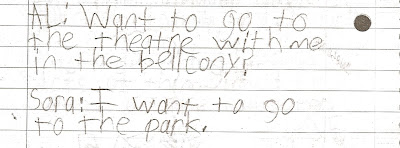 AL: Want to go to
the theatre with me
in the bellcony?
Sora: I want to go
to the park.